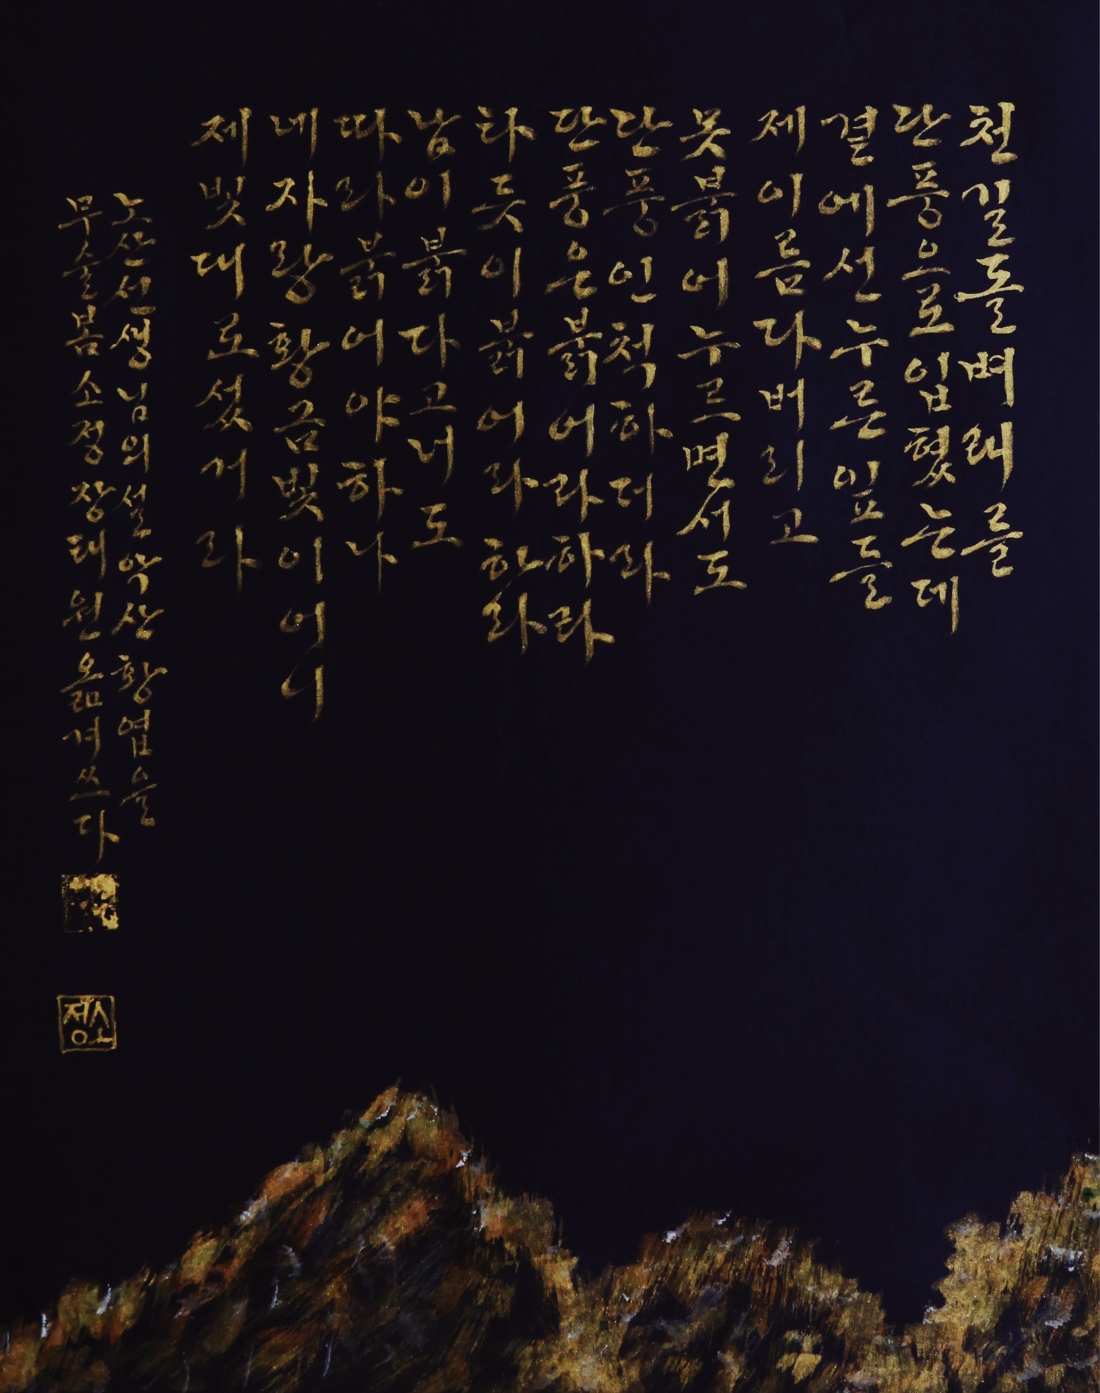 천길돌벼래를
단풍으로입혔는데
곁에선누른잎들
제이름다버리고
못붉어누르면서도
단풍인척하더라
단풍은붉어라하라
타듯이붉어라한와
남이붉다고너도
따라붉어야하나
네자랑황금빛이어니
제빛대로섰거라
노산선생님의설악산황엽을
무술봄소정장태원옮겨쓰다
소정